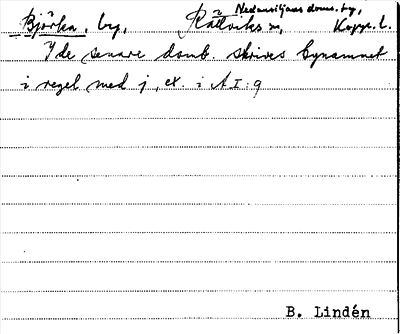 Björka, by, Rättviks sn, Nedansiljans doms. by, Kopp. l.
I de senare domb. skrives bynamnet
i regel med j, ex. i A I:9
B. Lindén